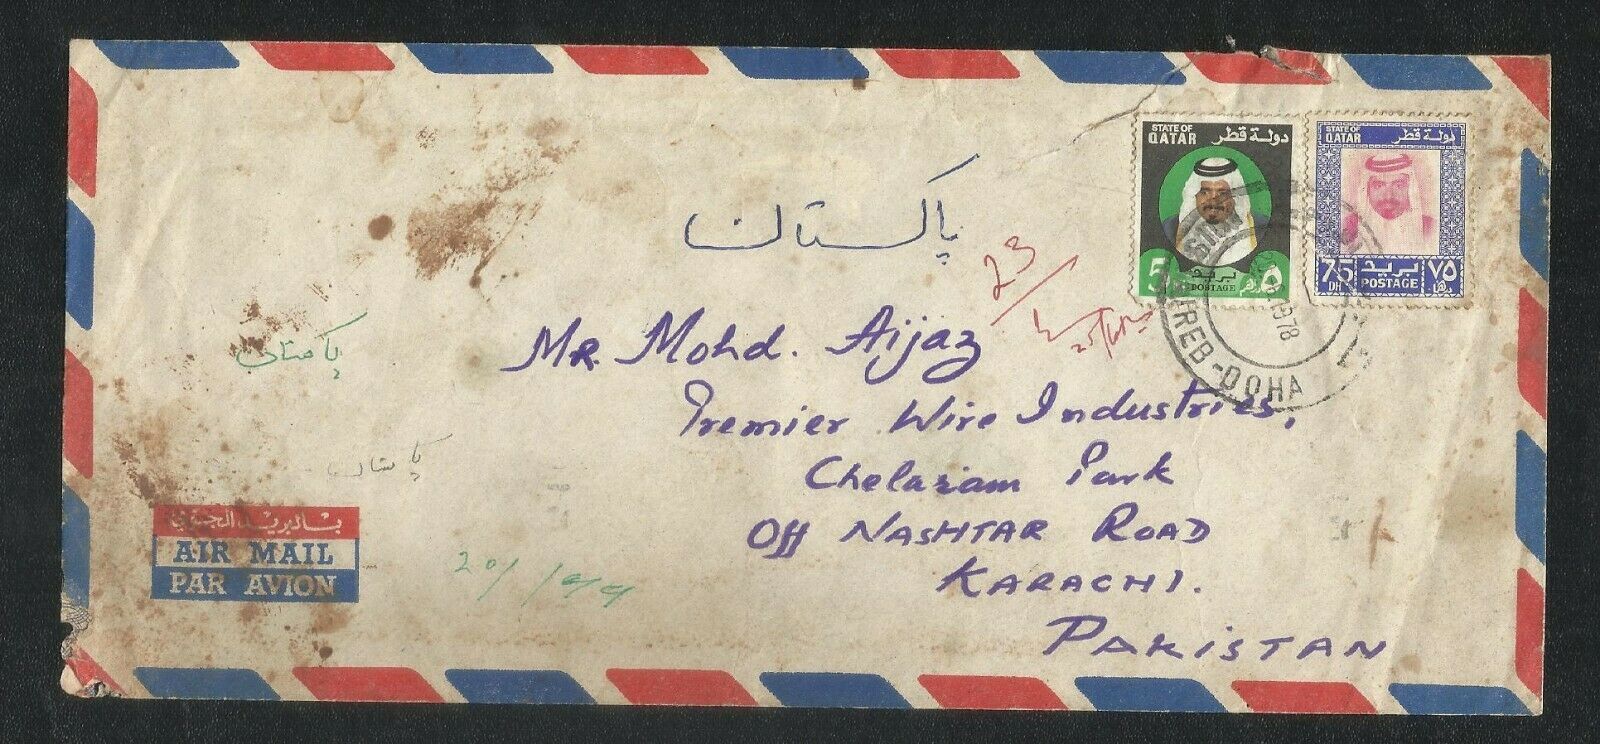 STATE OF QATAR دولة قطر
5 بريد ٥
POSTAGE
STATE OF QATAR دولة قطر
75 DH بريد ٧٥
POSTAGE
1978
-DOHA
پاکستان
23
Mr. Mohd. Aijaz
Premier Wire Industries,
Chelaram Park
Off NASHTAR ROAD
KARACHI.
PAKISTAN
پاکستان
پاکستان
بالبريد الجوي
AIR MAIL
PAR AVION